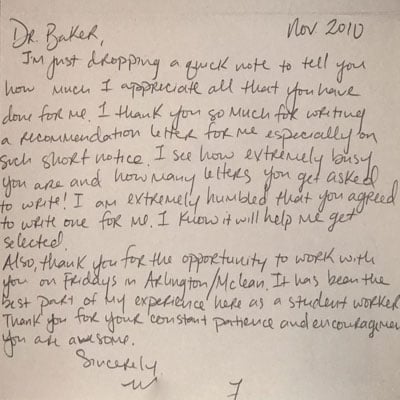 Dr. Baker,
Nov 2010
I'm just dropping a quick note to tell you
how much I appreciate all that you have
done for me. I thank you so much for writing
a recommendation letter for me especially on
such short notice. I see how extremely busy
you are and how many letters you get asked
to write! I am extremely humbled that you agreed
to write one for me. I know it will help me get
selected.
Also, thank you for the opportunity to work with
you on Fridays in Arlington/Mclean. It has been the
best part of my experience here as a student worker
Thank you for your constant patience and encouragemen
you are awesome.
Sincerely